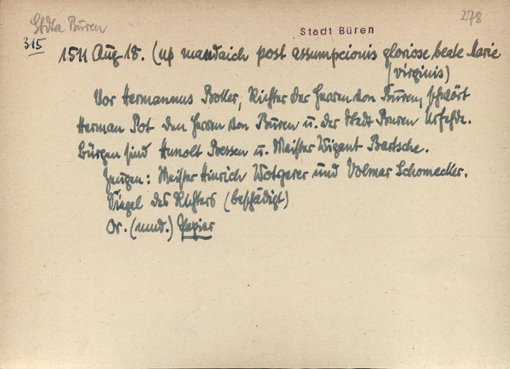 Stdta Büren
278
Stadt Büren
315
1511 Aug. 18. (up mandaich post assumpcionis gloriose beate Marie
virginis)
Vor Hermannus Broller, Richter der Herren von Büren, schwört
Herman Pot den Herren von Büren u. der Stadt Buren Urfehde.
Bürgen sind Hunolt Bressen u. Meister Wigant Bartsche.
Zeugen: Meister Hinrich Wotgerer und Volmar Schomecker.
Siegel des Richters (beschädigt)
Or. (mnd.) Papier